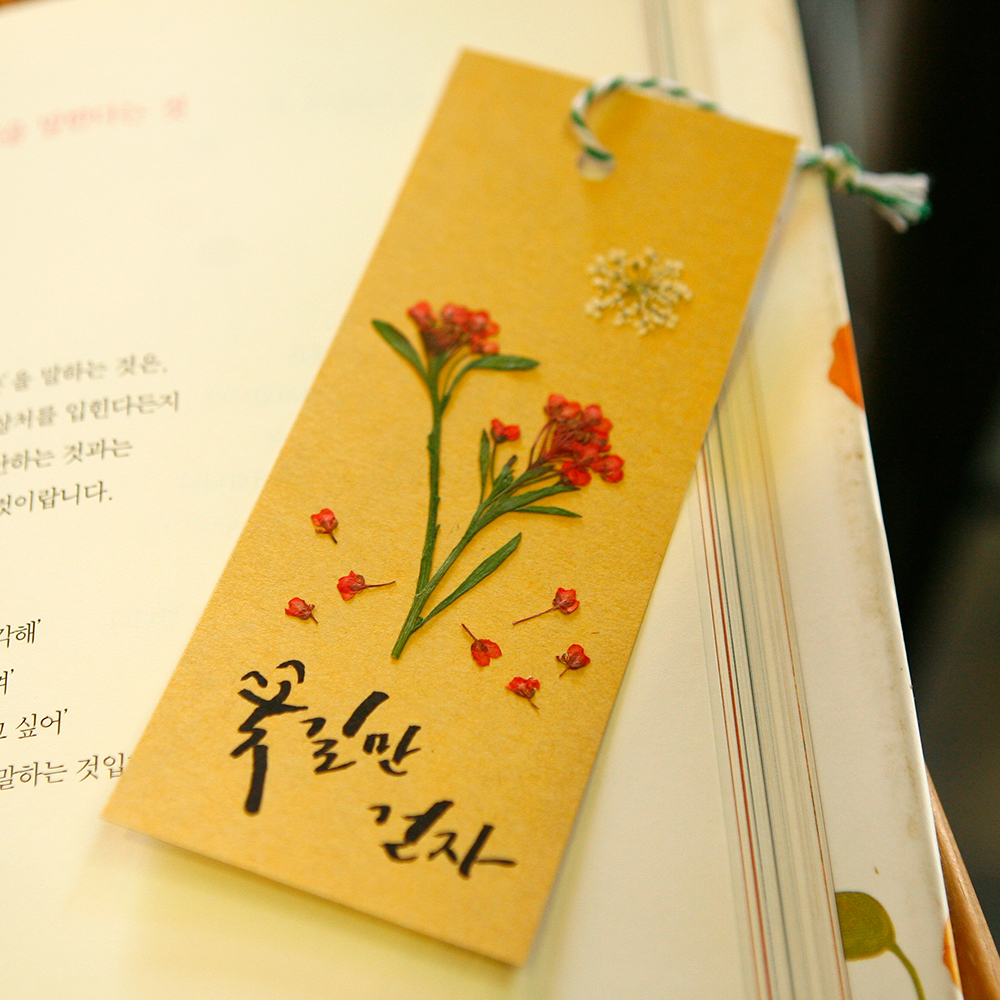 을 말하는 것은,
상처를 입힌다든지
하는 것과는
것이랍니다.
각해'
싶어'
말하는 것입
꽃길만
걷자